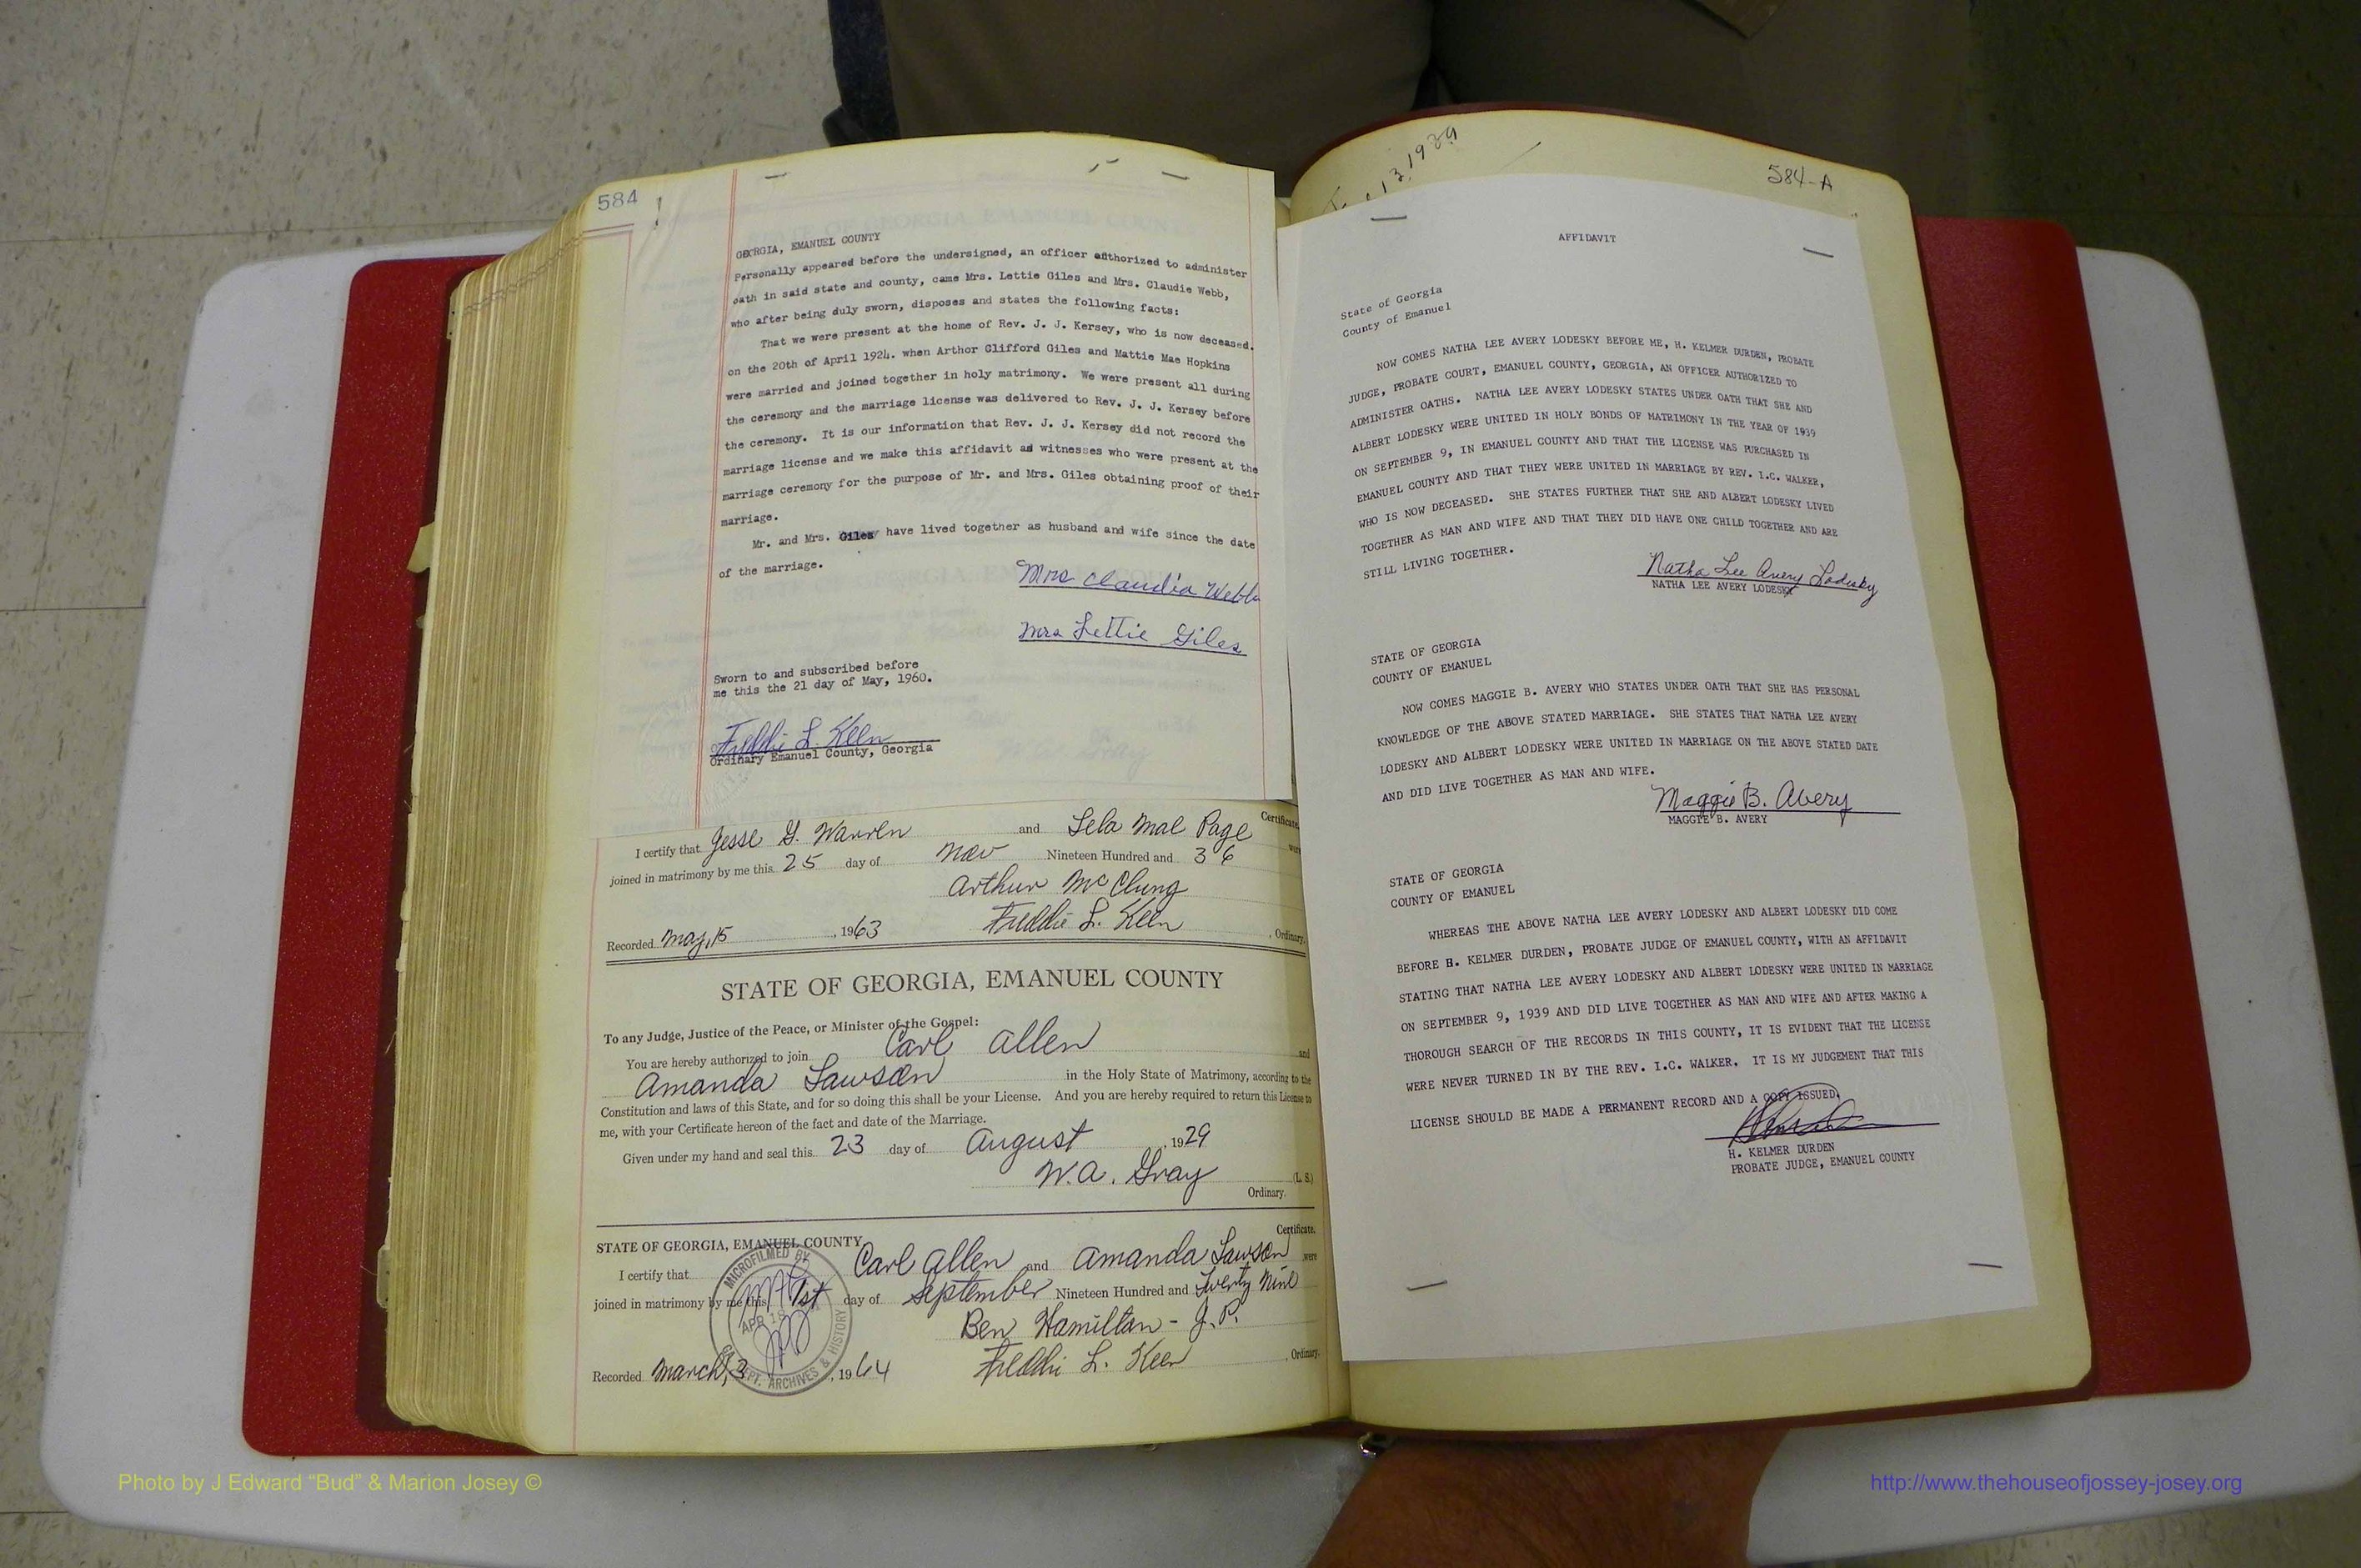 584
GEORGIA, EMANUEL COUNTY
Personally appeared before the undersigned, an officer authorized to administer
oath in said state and county, came Mrs. Lettie Giles and Mrs. Claudie Webb,
who after being duly sworn, disposes and states the following facts:
That we were present at the home of Rev. J. J. Kersey, who is now deceased.
on the 20th of April 1924. when Arthor Clifford Giles and Mattie Mae Hopkins
were married and joined together in holy matrimony. We were present all during
the ceremony and the marriage license was delivered to Rev. J. J. Kersey before
the ceremony. It is our information that Rev. J. J. Kersey did not record the
marriage license and we make this affidavit as witnesses who were present at the
marriage ceremony for the purpose of Mr. and Mrs. Giles obtaining proof of their
marriage.
Mr. and Mrs. Giles have lived together as husband and wife since the date
of the marriage.
Mrs Claudia Webb
Mrs Lettie Giles
Sworn to and subscribed before
me this the 21 day of May, 1960.
Freddie L. Keen
Ordinary Emanuel County, Georgia
Certificate.
I certify that Jesse G. Warren and Lela Mae Page were
joined in matrimony by me this 25 day of Nov Nineteen Hundred and 36
Arthur McClung
Recorded May, 15, 1963 Freddie L. Keen, Ordinary.
STATE OF GEORGIA, EMANUEL COUNTY
To any Judge, Justice of the Peace, or Minister of the Gospel:
You are hereby authorized to join Carl Allen and
Amanda Lawson in the Holy State of Matrimony, according to the
Constitution and laws of this State, and for so doing this shall be your License. And you are hereby required to return this License to
me, with your Certificate hereon of the fact and date of the Marriage.
Given under my hand and seal this 23 day of August, 1929
W. A. Gray (L. S.)
Ordinary.
Certificate.
STATE OF GEORGIA, EMANUEL COUNTY
I certify that Carl Allen and Amanda Lawson were
joined in matrimony by me this 1st day of September Nineteen Hundred and Twenty Nine
Ben Hamilton - J. P.
Recorded March, 3, 1964 Freddie L. Keen, Ordinary.
MICROFILMED BY
APR 18
GA. DEPT. ARCHIVES & HISTORY
13, 1939
584-A
AFFIDAVIT
State of Georgia
County of Emanuel
NOW COMES NATHA LEE AVERY LODESKY BEFORE ME, H. KELMER DURDEN, PROBATE
JUDGE, PROBATE COURT, EMANUEL COUNTY, GEORGIA, AN OFFICER AUTHORIZED TO
ADMINISTER OATHS. NATHA LEE AVERY LODESKY STATES UNDER OATH THAT SHE AND
ALBERT LODESKY WERE UNITED IN HOLY BONDS OF MATRIMONY IN THE YEAR OF 1939
ON SEPTEMBER 9, IN EMANUEL COUNTY AND THAT THE LICENSE WAS PURCHASED IN
EMANUEL COUNTY AND THAT THEY WERE UNITED IN MARRIAGE BY REV. I.C. WALKER,
WHO IS NOW DECEASED. SHE STATES FURTHER THAT SHE AND ALBERT LODESKY LIVED
TOGETHER AS MAN AND WIFE AND THAT THEY DID HAVE ONE CHILD TOGETHER AND ARE
STILL LIVING TOGETHER.
Natha Lee Avery Lodesky
NATHA LEE AVERY LODESKY
STATE OF GEORGIA
COUNTY OF EMANUEL
NOW COMES MAGGIE B. AVERY WHO STATES UNDER OATH THAT SHE HAS PERSONAL
KNOWLEDGE OF THE ABOVE STATED MARRIAGE. SHE STATES THAT NATHA LEE AVERY
LODESKY AND ALBERT LODESKY WERE UNITED IN MARRIAGE ON THE ABOVE STATED DATE
AND DID LIVE TOGETHER AS MAN AND WIFE.
Maggie B. Avery
MAGGIE B. AVERY
STATE OF GEORGIA
COUNTY OF EMANUEL
WHEREAS THE ABOVE NATHA LEE AVERY LODESKY AND ALBERT LODESKY DID COME
BEFORE H. KELMER DURDEN, PROBATE JUDGE OF EMANUEL COUNTY, WITH AN AFFIDAVIT
STATING THAT NATHA LEE AVERY LODESKY AND ALBERT LODESKY WERE UNITED IN MARRIAGE
ON SEPTEMBER 9, 1939 AND DID LIVE TOGETHER AS MAN AND WIFE AND AFTER MAKING A
THOROUGH SEARCH OF THE RECORDS IN THIS COUNTY, IT IS EVIDENT THAT THE LICENSE
WERE NEVER TURNED IN BY THE REV. I.C. WALKER. IT IS MY JUDGEMENT THAT THIS
LICENSE SHOULD BE MADE A PERMANENT RECORD AND A COPY ISSUED.
H. KELMER DURDEN
PROBATE JUDGE, EMANUEL COUNTY
Photo by J Edward “Bud” & Marion Josey ©
http://www.thehouseofjossey-josey.org